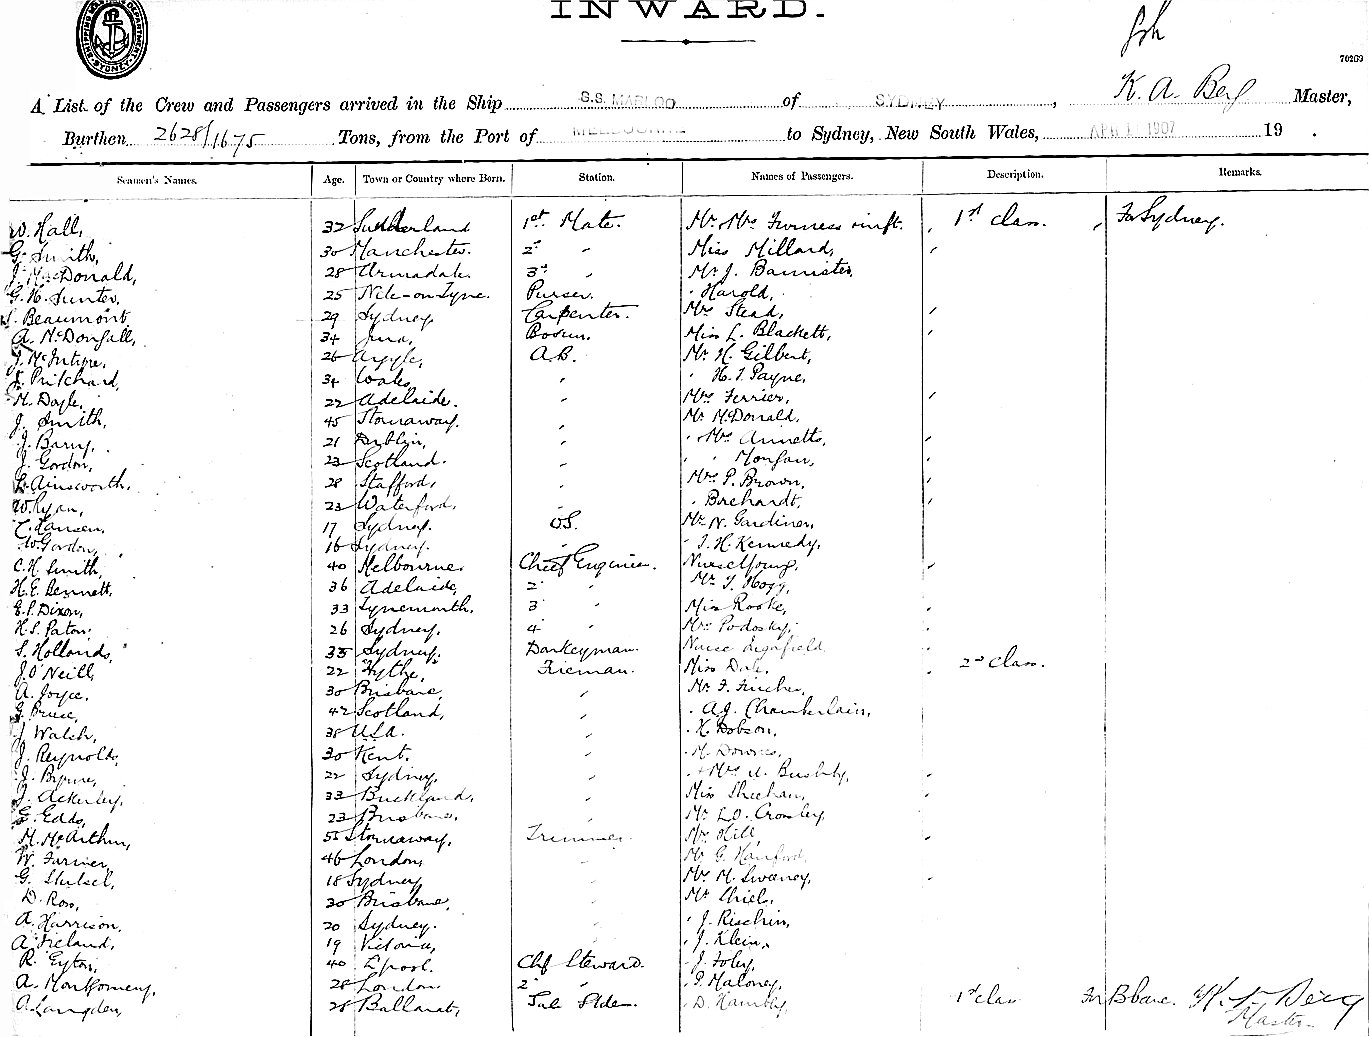 INWARD.
SHIPPING MASTERS DEPARTMENT SYDNEY
70269
A List of the Crew and Passengers arrived in the Ship S.S. MARLOO of SYDNEY, K. A. Berg Master,
Burthen 2628/1675 Tons, from the Port of MELBOURNE to Sydney, New South Wales, APR 1907 19 .
Seamen's Names. Age. Town or Country where Born. Station. Names of Passengers. Description. Remarks.
W. Hall, 32 Sutherland 1st Mate. Mr. Mrs Furness 1st class. For Sydney.
G. Smith, 30 Manchester. 2 " Miss Millard,
J. MacDonald, 28 Armadale. 3rd " Mr J. Bannister,
G. H. Sunter, 25 Purser. " Harold,
Beaumont 29 Sydney Carpenter. Mrs Stead,
A. McDougall, 34 Bosun. Miss L. Blackett,
J. McIntyre, 26 Argyle, A.B. Mr H. Gilbert,
Pritchard, 34 Wales, " " H. T. Payne,
M. Doyle, 22 Adelaide. " Mrs Ferrier,
J. Smith, 45 Stornaway. " Mr McDonald,
J. Barry, 21 Dublin, " " Mrs Annetts,
J. Gordon, 23 Scotland. " " " Morgan,
Ainsworth, 28 Stafford, " Mrs P. Brown,
W. Ryan, 23 Waterford, " " Borchardt,
C. Hansen, 17 Sydney. OS. Mr N. Gardiner,
W. Gordon, 16 Sydney. " " J. H. Kennedy,
C. H. Smith, 40 Melbourne Chief Engineer. Nurse Young,
H. E. Bennett, 36 Adelaide, 2 " Mr T. Hogg,
E. P. Dixon, 33 Tynemouth, 3 " Miss Rooke,
H. S. Paton, 26 Sydney, 4 " Mrs Podosky,
S. Hollands, 35 Sydney, Donkeyman. Nurse
J. O'Neill, 22 Hythe, Fireman. Miss Dale, 2nd class.
A. Joyce, 30 Brisbane, " Mr F. Fincher,
G. Bruce, 42 Scotland, " " A. J. Chamberlain,
J. Walsh, 38 U.S.A. " " K. Dobson,
J. Reynolds, 30 Kent. " " M. Downes,
J. Byrne, 22 Sydney, " " + Mrs Bushby,
J. Ackerley, 33 Buckland, " Miss Sheehan,
Eads, 23 Brisbane, " Mr L. O. Crossley
M. McArthur, 55 Stornaway, Trimmer. Mr Hill,
W. Turner, 46 London, " Mr G. Hanford,
G. 18 Sydney " Mrs M. Sweeney,
D. Ross, 30 Brisbane, " Mr Chiel,
A. Harrison, 20 Sydney. " " J. Rischin,
A. Ireland, 19 Victoria, " J. Klein,
R. Eyton, 40 L'pool. Chf Steward. " J. Foley,
A. Montgomery, 28 London 2 " " P. Maloney,
A. Langden, 28 Ballarat, " D. Hambly, 1st class For Bbane. K. A. Berg
Master.